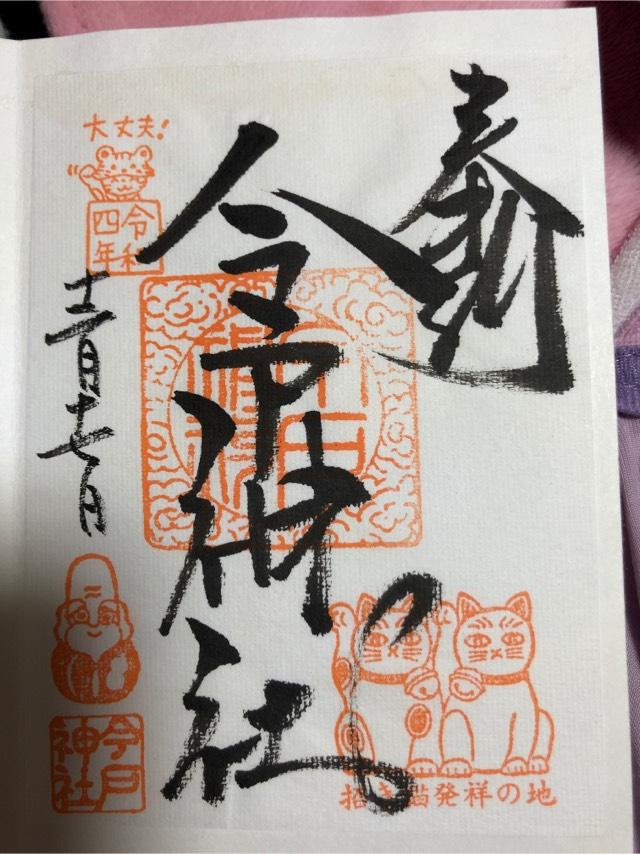 奉拝
今戸神社
大丈夫!
令和
四年
十二月十七日
今戸
神社
招き猫発祥の地